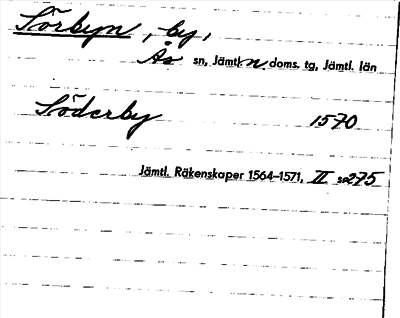 Sörbyn, by,
Ås sn, Jämtl. n. doms. tg, Jämtl. län
Söderby 1570
Jämtl. Räkenskaper 1564–1571, II s. 275